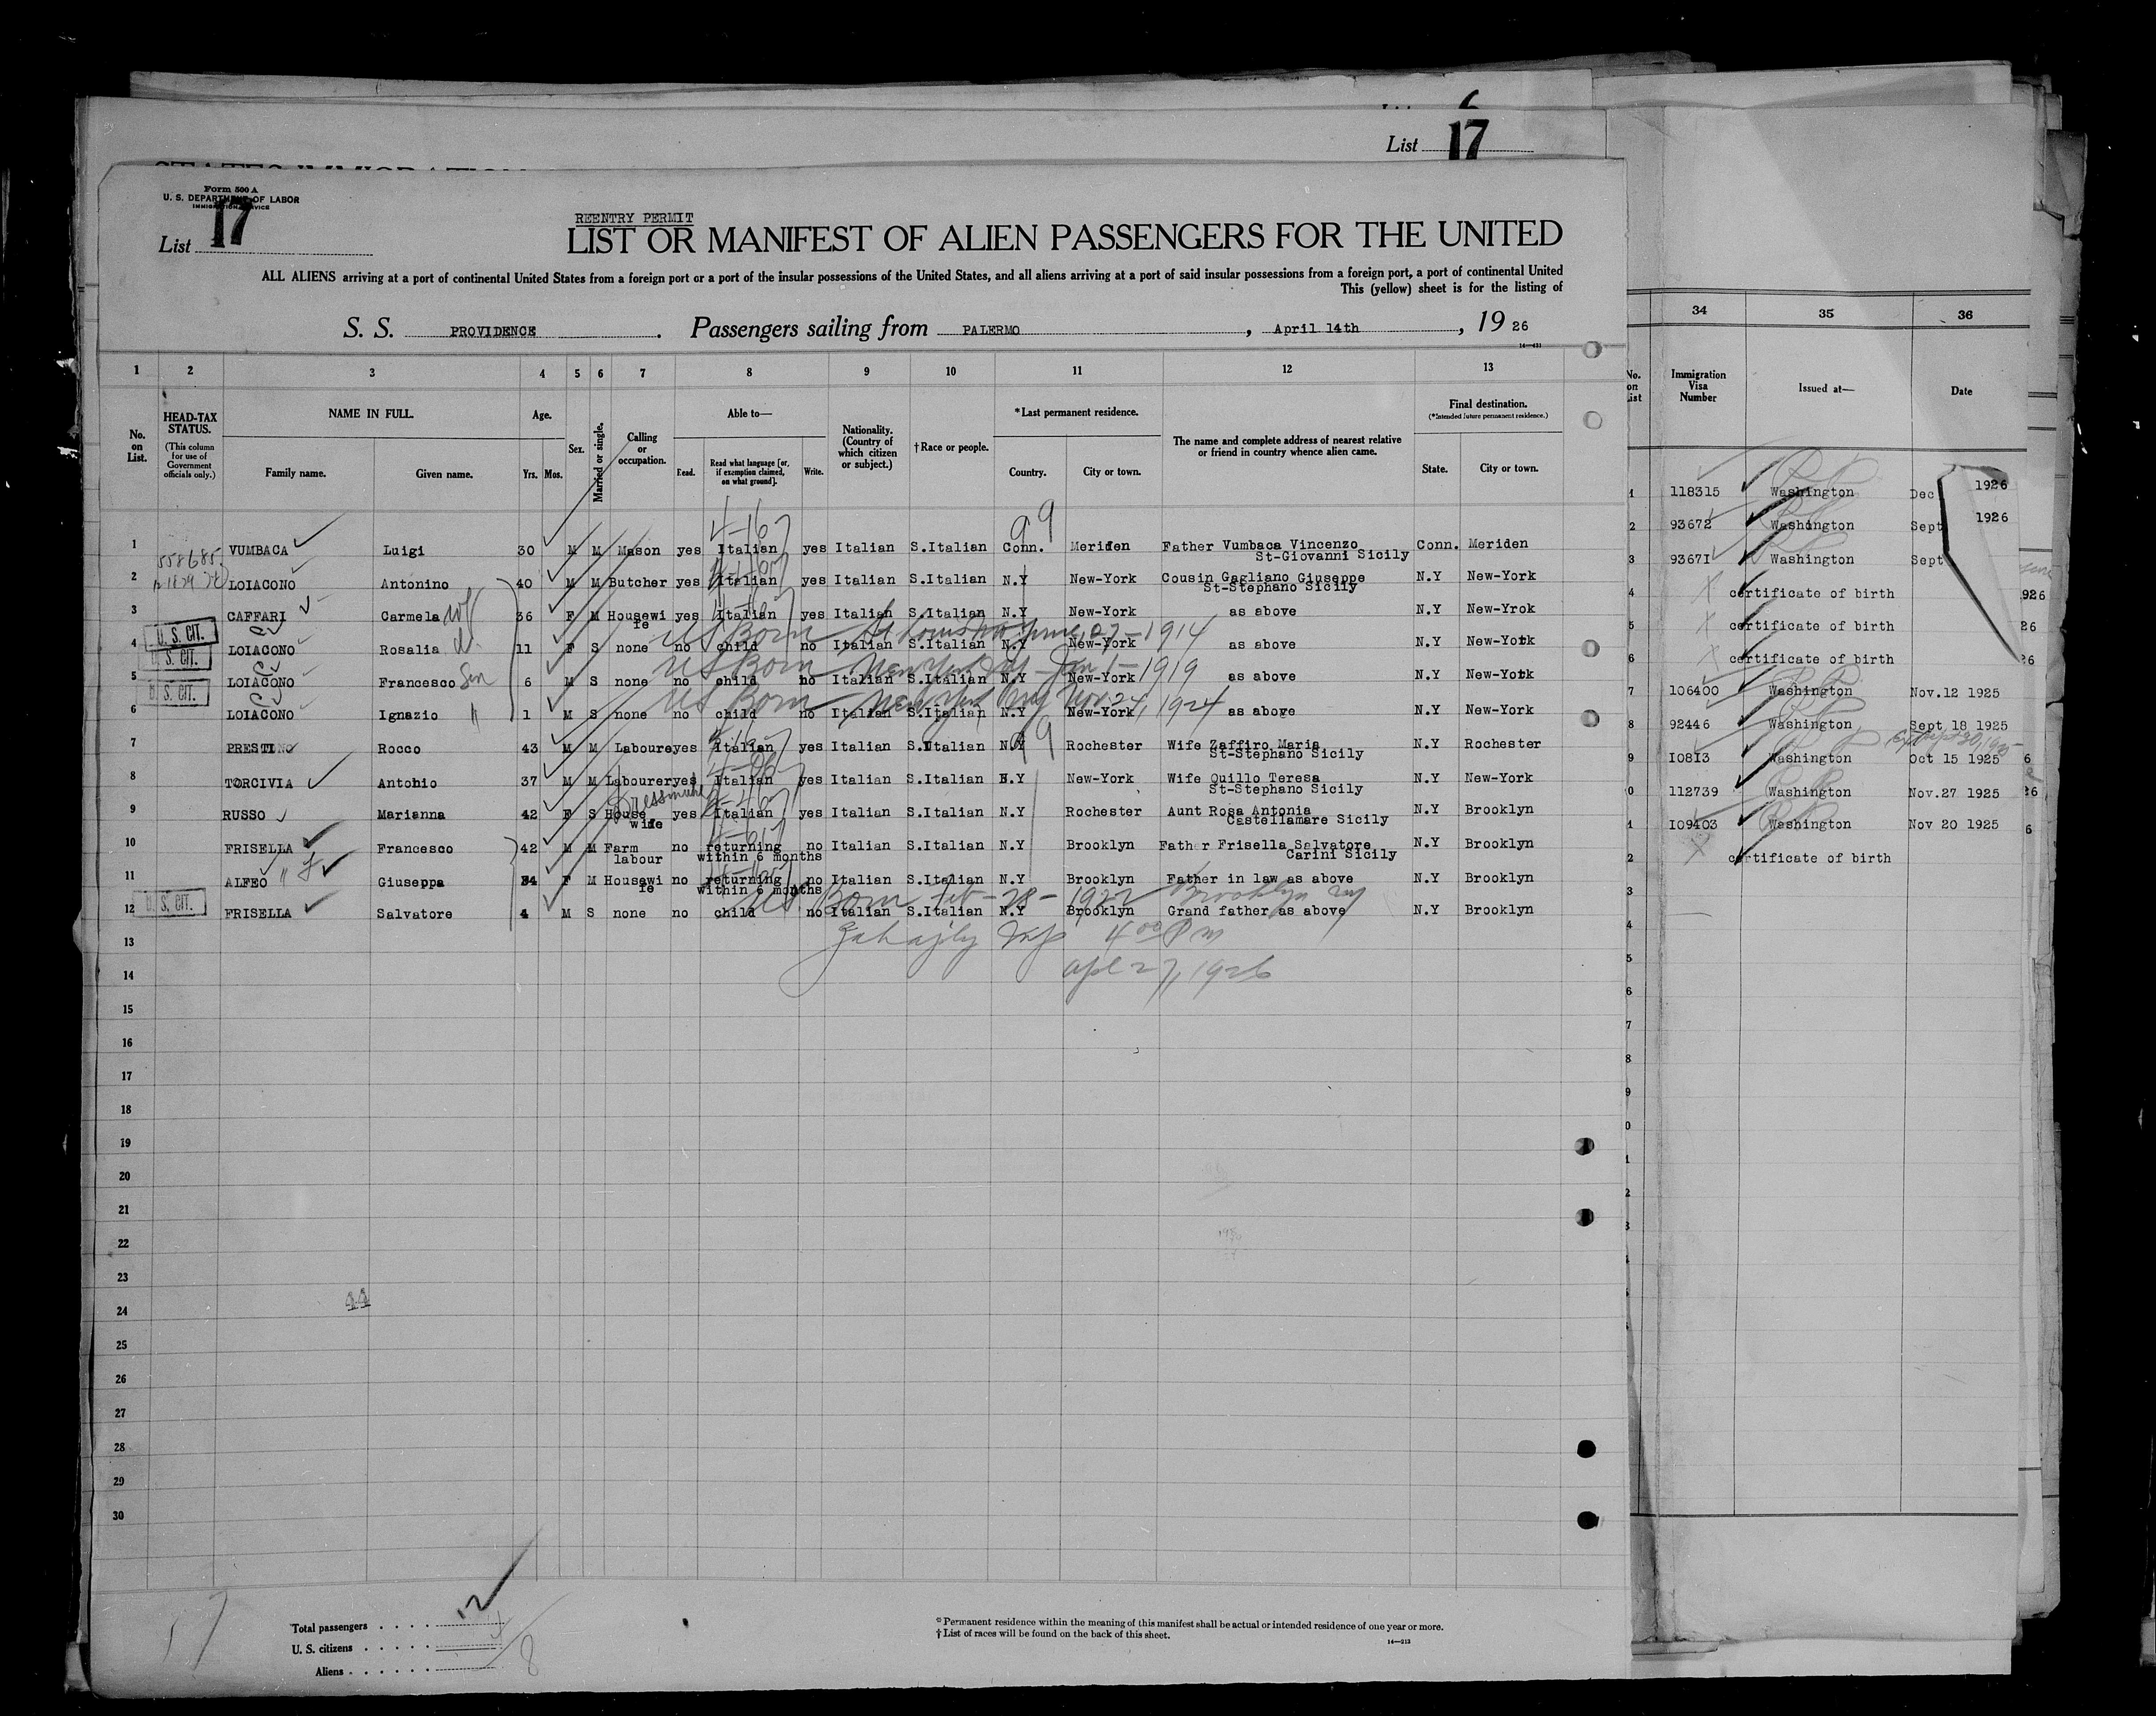 List 17
Form 500 A
U. S. DEPARTMENT OF LABOR
IMMIGRATION SERVICE
List 17
REENTRY PERMIT
LIST OR MANIFEST OF ALIEN PASSENGERS FOR THE UNITED
ALL ALIENS arriving at a port of continental United States from a foreign port or a port of the insular possessions of the United States, and all aliens arriving at a port of said insular possessions from a foreign port, a port of continental United
This (yellow) sheet is for the listing of
S. S. PROVIDENCE. Passengers sailing from PALERMO, April 14th, 19 26
1 2 3 4 5 6 7 8 9 10 11 12 13
No. on List.
HEAD-TAX STATUS. (This column for use of Government officials only.)
NAME IN FULL. Family name. Given name.
Age. Yrs. Mos.
Sex.
Married or single.
Calling or occupation.
Able to— Read. Read what language [or, if exemption claimed, on what ground]. Write.
Nationality. (Country of which citizen or subject.)
†Race or people.
*Last permanent residence. Country. City or town.
The name and complete address of nearest relative or friend in country whence alien came.
Final destination. (*Intended future permanent residence.) State. City or town.
1 VUMBACA Luigi 30 M M Mason yes Italian yes Italian S.Italian Conn. Meriden Father Vumbaca Vincenzo St-Giovanni Sicily Conn. Meriden
2 LOIACONO Antonino 40 M M Butcher yes Italian yes Italian S.Italian N.Y New-York Cousin Gagliano Giuseppe St-Stephano Sicily N.Y New-York
3 CAFFARI Carmela wf 36 F M Housewife yes Italian yes Italian S.Italian N.Y New-York as above N.Y New-Yrok
U. S. CIT.
US Born St Louis Mo June 27-1914
4 LOIACONO Rosalia d. 11 F S none no child no Italian S.Italian N.Y New-York as above N.Y New-York
U. S. CIT.
US Born New York NY Jan 1-1919
5 LOIACONO Francesco Son 6 M S none no child no Italian S.Italian N.Y New-York as above N.Y New-York
U. S. CIT.
US Born New York NY Nov. 24, 1924
6 LOIACONO Ignazio " 1 M S none no child no Italian S.Italian N.Y New-York as above N.Y New-York
7 PRESTINO Rocco 43 M M Laboure yes Italian yes Italian S.Italian N.Y Rochester Wife Zaffiro Maria St-Stephano Sicily N.Y Rochester
8 TORCIVIA Antohio 37 M M Labourer yes Italian yes Italian S.Italian N.Y New-York Wife Quillo Teresa St-Stephano Sicily N.Y New-York
9 RUSSO Marianna 42 F S House wife yes Italian yes Italian S.Italian N.Y Rochester Aunt Rosa Antonia Castellamare Sicily N.Y Brooklyn
10 FRISELLA Francesco 42 M M Farm labour no returning within 6 months no Italian S.Italian N.Y Brooklyn Father Frisella Salvatore Carini Sicily N.Y Brooklyn
11 ALFEO Giuseppa 34 F M Housewife no returning within 6 months no Italian S.Italian N.Y Brooklyn Father in law as above N.Y Brooklyn
U. S. CIT.
US Born Feb-28-1922 Brooklyn NY
12 FRISELLA Salvatore 4 M S none no child no Italian S.Italian N.Y Brooklyn Grand father as above N.Y Brooklyn
13 4 00 P m
14 apl 27, 1926
15
16
17
18
19
20
21
22
23
24
25
26
27
28
29
30
Total passengers 12
U. S. citizens 4
Aliens 8
*Permanent residence within the meaning of this manifest shall be actual or intended residence of one year or more.
†List of races will be found on the back of this sheet.
14—213
34 35 36
No. on List
Immigration Visa Number
Issued at—
Date
1 118315 Washington Dec 1926
2 93672 Washington Sept 1926
3 93671 Washington Sept
4 certificate of birth
5 certificate of birth
6 certificate of birth
7 106400 Washington Nov.12 1925
8 92446 Washington Sept 18 1925
9 I08I3 Washington Oct 15 1925
0 112739 Washington Nov.27 1925
1 I09403 Washington Nov 20 1925
2 certificate of birth